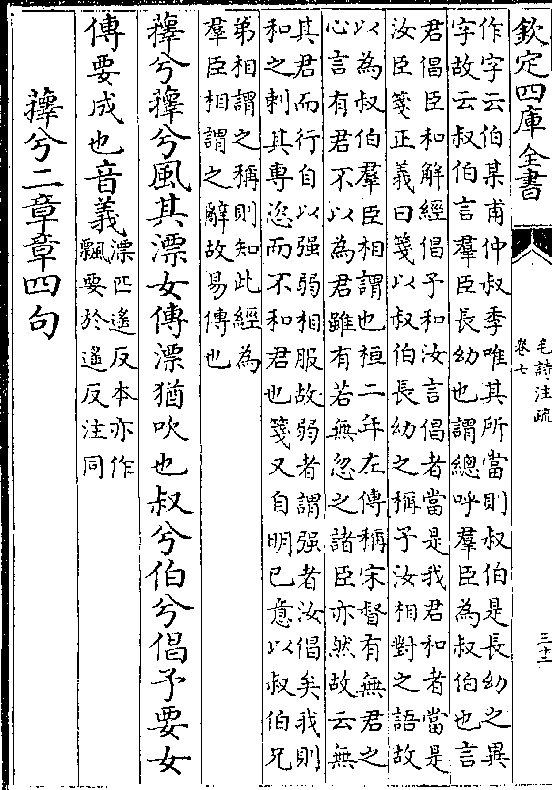 欽定四庫全書
毛詩注疏
卷七
三十二
作字云伯某甫仲叔季唯其所當則叔伯是長幼之異
字故云叔伯言羣臣長幼也謂總呼羣臣為叔伯也言
君倡臣和解經倡予和汝言倡者當是我君和者當是
汝臣箋正義曰箋以叔伯長幼之稱予汝相對之語故
以為叔伯羣臣相謂也桓二年左傳稱宋督有無君之
心言有君不以為君雖有若無忽之諸臣亦然故云無
其君而行自以强弱相服故弱者謂强者汝倡矣我則
和之刺其專恣而不和君也箋又自明已意以叔伯兄
弟相謂之稱則知此經為
羣臣相謂之辭故易傳也
蘀兮蘀兮風其漂女傳漂猶吹也叔兮伯兮倡予要女
傳要成也音義漂匹遙反本亦作
飄要於遙反注同
蘀兮二章章四句